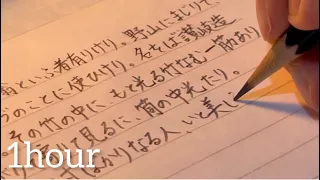 翁といふ者有りけり。野山にまじりて
づのことに使ひけり。名をば讃岐造
その竹の中に、もと光る竹なむ一筋あり
て見るに、筒の中光たり。
ばかりなる人、いと美し
1hour